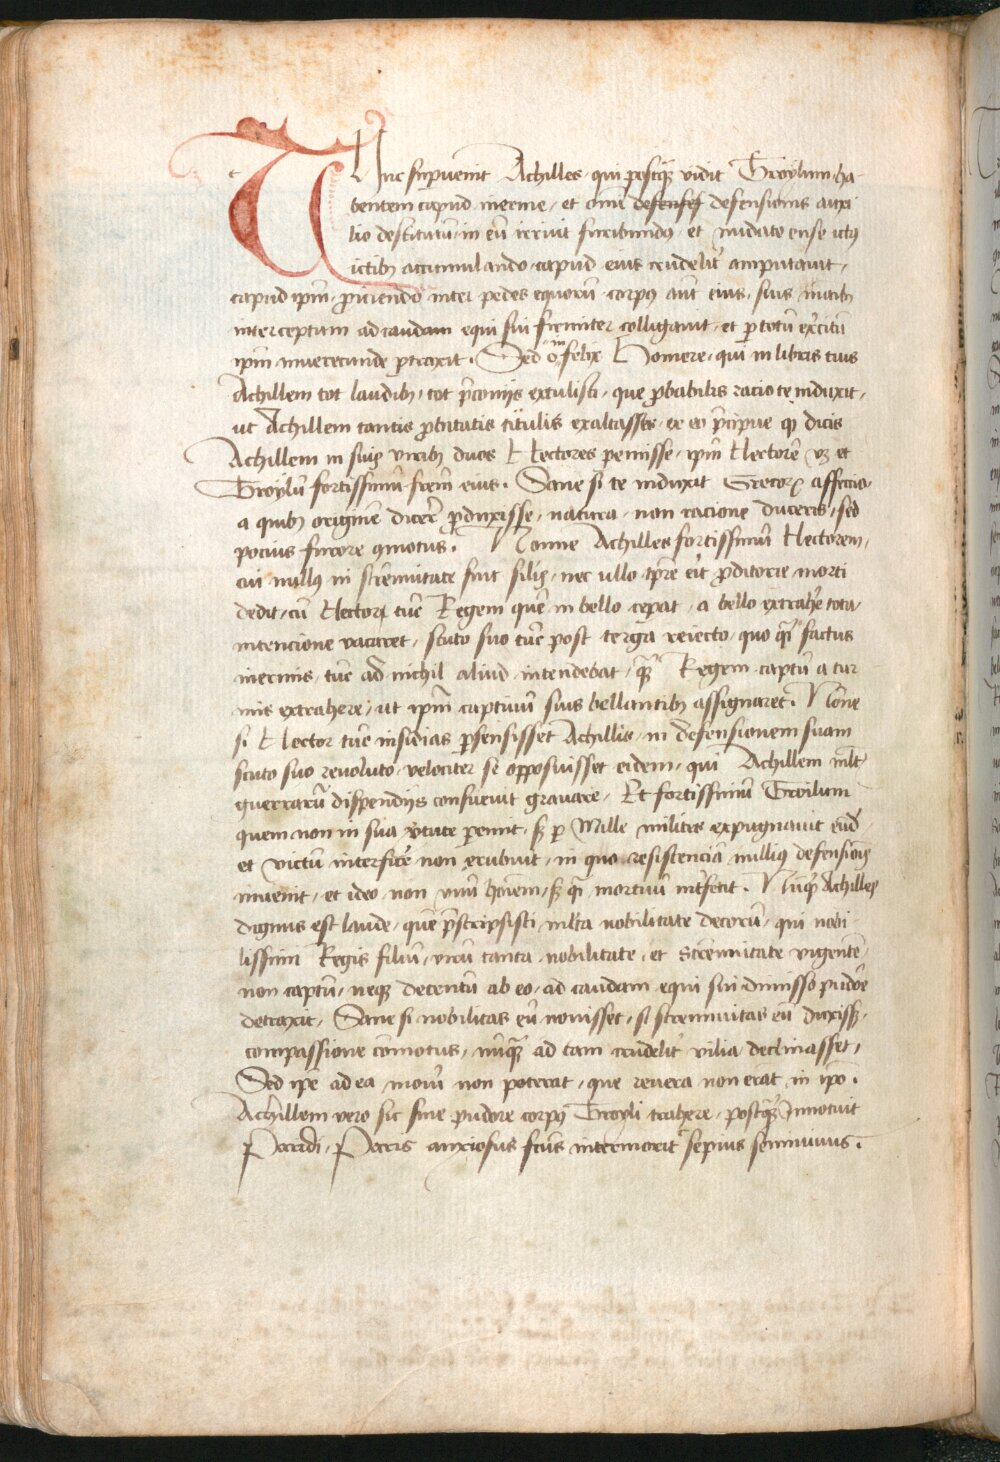 TUnc supuenit Achilles qui postq̃ vidit Troylum ha-
bentem capud inerme, et omi defensis defensionis auxi
lio destitutũ, in eũ irruit furibundꝰ et nudato ense ictꝰ
ictibꝫ accumulando capud eius crudelit᷑ amputauit,
capud ipm̃ proiciendo inter pedes equorũ corpꝰ aũt eius, suis manibꝫ
interceptum ad caudam equi sui firmiter colligauit, et p totũ exꝰcitũ
ipm̃ inuerecunde ptraxit. Sed o infelix Homere, qui in libris tuis
Achillem tot laudibꝫ, tot p̃conijs extulisti, que p̱babilis racio te induxit,
ut Achillem tantis p̱bitatis titulis exaltasses, ex eo p̃cipue qꝫ dicis
Achillem in suis viribꝫ duos Hectores peruisse, ipm̃ Hectorẽ vꝫ et
Troylũ fortissimũ fr̃em eius. Sane si te induxit Grecoꝝ affectio,
a quibꝫ originẽ dicer̃ p̱duxisse, natura, non racione duceris, sed
pocius furore qmotus. Nonne Achilles fortissimũ Hectorem,
cui nullꝰ in strẽnuitate fuit silis, nec ullo tp̃re eit p̱ditorie morti
dedit, cũ Hector tũc Regem quẽ in bello cepat, a bello extrahẽ tota
intencione vacaret, scuto suo tũc post terga reiecto, quo q̃i factus
inermis, tũc ad nichil aliud intendebat, q̃ Regem captũ a tur
mis extrahere, ut ipm̃ captiuũ suis bellantibꝫ assignaret. Nõne
si Hector tũc insidias p̱sensisset Achillis, in defensionem suam
scuto suo reuoluto, velociter se opposuisset eidem, qui Achillem ml̃t
guerrarũ dispendijs consueuit grauare, Et fortissimũ Troilum
quem non in sua ṽtute pemit, sꝫ p Mille milites expugnauit eũd
et victũ interficẽ non erubuit, in quo resistenciã nulliꝰ defensionis
inuenit, et ideo non viuũ hoĩem, sꝫ q̃i mortuũ int̃fecit. Nũq̃ Achilles
dignus est laude, quẽ p̃scripsisti, ml̃ta nobilitate decorũ, qui nobi
lissimi Regis filiũ, virũ tanta nobilitate, et strennuitate vigentẽ
non captũ, neqꝫ deuictũ ab eo, ad caudam equi sui dimisso pudõe
detraxit, Sane si nobilitas eũ mouisset, si strennuitas eũ duxissꝫ,
compassione cõmotus, nũq̃ ad tam crudelit᷑ vilia declinasset,
Sed ipẽ ad ea moũi non poterat, que reuera non erãt in ipo.
Achillem vero sic sine pudore corpꝰ Troyli trahere, postq̃ Innotuit
Paridi, Paris anxiosus fc̃us intermorit᷑ sepius seminiuus.